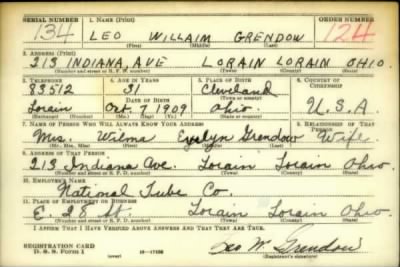 SERIAL NUMBER 1. NAME (Print) ORDER NUMBER
134 LEO WILLAIM GRENDOW 124
(First) (Middle) (Last)
2. ADDRESS (Print)
213 INDIANA, AVE LORAIN LORAIN OHIO.
(Number and street or R. F. D. number) (Town) (County) (State)
3. TELEPHONE 4. AGE IN YEARS 5. PLACE OF BIRTH 6. COUNTRY OF CITIZENSHIP
83512 31 Cleveland
DATE OF BIRTH (Town or county)
Lorain Oct 7 1909 Ohio. U.S.A.
(Exchange) (Number) (Mo.) (Day) (Yr.) (State or country)
7. NAME OF PERSON WHO WILL ALWAYS KNOW YOUR ADDRESS 8. RELATIONSHIP OF THAT PERSON
Mrs. Wilma Evelyn Grendow Wife
(Mr., Mrs., Miss) (First) (Middle) (Last)
9. ADDRESS OF THAT PERSON
213 Indiana Ave. Lorain Lorain Ohio
(Number and street or R. F. D. number) (Town) (County) (State)
10. EMPLOYER'S NAME
National Tube Co.
11. PLACE OF EMPLOYMENT OR BUSINESS
E. 28 St. Lorain Lorain Ohio.
(Number and street or R. F. D. number) (Town) (County) (State)
I AFFIRM THAT I HAVE VERIFIED ABOVE ANSWERS AND THAT THEY ARE TRUE.
REGISTRATION CARD
D. S. S. Form 1 (over) Leo W. Grendow
(Registrant's signature)